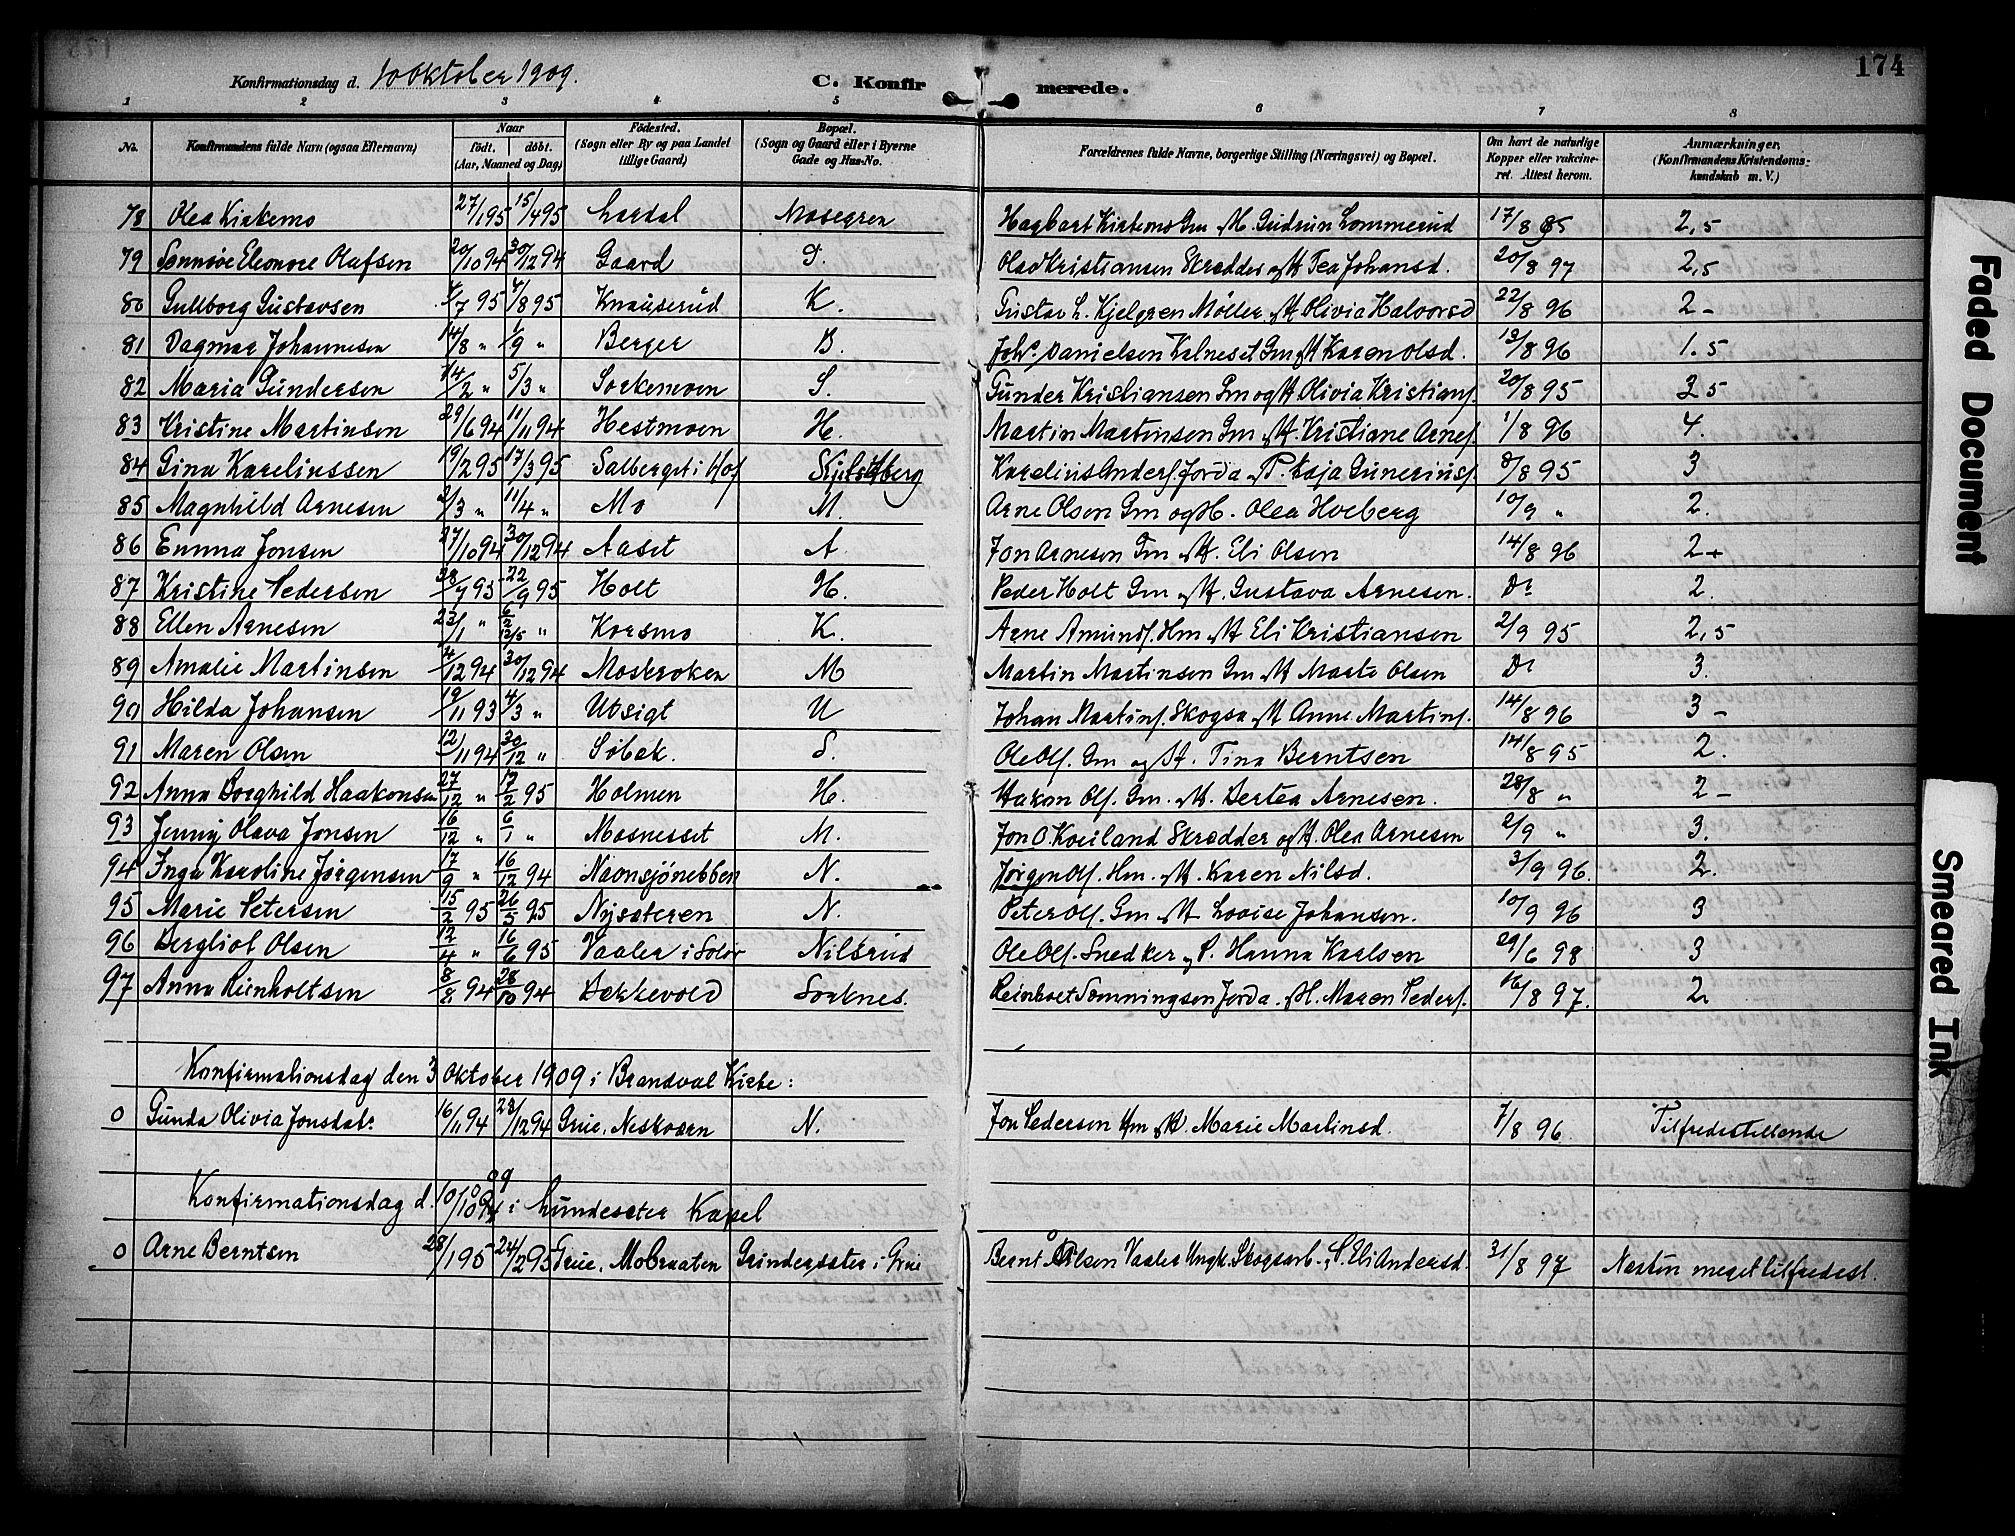 174
Konfirmationsdag d. 10 Oktober 1909.
C. Konfirmerede.
1 2 3 4 5 6 7 8
No. Konfirmandens fulde Navn (ogsaa Efternavn) Naar født. døbt. (Aar, Maaned og Dag) Fødested. (Sogn eller By og paa Landet tillige Gaard) Bopæl. (Sogn og Gaard eller i Byerne Gade og Hus-No. Forældrenes fulde Navne, borgerlige Stilling (Næringsvei) og Bopæl. Om havt de naturlige Kopper eller vakcineret. Attest herom. Anmærkninger. (Konfirmandens Kristendomskundskab m. V.)
78 Olea Kirkemo 27/1 95 15/4 95 Lordal Mosegren Hagbart Kirkemo Gm. & H. Gudrun Lommerud 17/8 95 2,5
79 Sannøve Eleonore Olafsen 20/10 94 30/12 94 Gaard G. Olav Kristiansen Skrædder og H. Tea Johansd. 20/8 97 2,5
80 Gullborg Gustavsen /7 95 4/8 95 Knauserud K. Gustav L. Kjelgren Møller & H. Olivia Halvorsd 22/8 96 2 -
81 Dagmar Johannesen 14/8 „ 1/9 „ Berger B. Johs. Danielsen Kalneset Gm & H Karen Olsd. 13/8 96 1.5
82 Maria Gundersen 14/2 „ 5/3 „ Sorkemoen S. Gunder Kristiansen Gm og H Olivia Kristians. 20/8 95 2 5
83 Kristine Martinsen 29/6 94 11/11 94 Hestmoen H. Martin Martinsen Gm & H. Kristiane Arnes. 1/8 96 4.
84 Gina Kareliussen 19/2 95 17/3 95 Salberget i Hof Kjelsberg Karelius Anders. Jorda. & P. Kaja Guneriuss. 8/8 95 3
85 Magnhild Arnesen 2/3 „ 11/4 „ Mo M. Arne Olsen Gm og H. Olea Hoeberg 10/9 „ 2.
86 Emma Jonsen 27/10 94 30/12 94 Aaset A. Jon Arnesen Gm & H. Eli Olsen 14/8 96 2 +
87 Kristine Pedersen 28/7 95 22/9 95 Holt H. Peder Holt Gm & H. Gustava Arnesen. Do 2.
88 Ellen Arnesen 23/1 „ 6/2 12/5 „ Korsmo K. Arne Amunds. Hm & H Eli Kristiansen 2/9 95 2,5
89 Amalie Martinsen 4/12 94 30/12 94 Mosbroken M Martin Martinsen Gm & H Marte Olsen Do 3.
90 Hilda Johansen 19/11 93 4/3 „ Utsigt U Johan Martins. Skogsa. & H Anne Martins. 14/8 96 3 -
91 Maren Olsen 12/11 94 30/12 „ Søbak. S. Ole Ols. Gm og H. Tina Berntsen 14/8 95 2.
92 Anna Borghild Haakonsen 27/12 „ 17/2 95 Holmen H. Hakon Ols. Gm. & H. Bertea Arnesen. 28/8 „ 2 -
93 Jenny Olava Jonsen 16/12 „ 6/1 „ Mosnesset M. Jon O. Koeiland Skrædder og H. Olea Arnesen 2/9 „ 3.
94 Inga Karoline Jørgensen 17/9 „ 16/12 94 Naonsjønebben N. Jørgen Ols. Hm. & H. Karen Nilsd. 3/9 96. 2.
95 Marie Petersen 15/2 95 26/5 95 Nysæteren N. Peter Ols. Gm & H Lovise Johansen. 10/9 96 3
96 Bergliot Olsen 12/4 „ 16/6 95 Vaaler i Solør Nilsrud Ole Ols. Snedker & P. Hanna Karlsen 29/6 98 3
97 Anna Rienholtsen 8/8 94 28/10 94 Bekkevold Sorknes. Reinholt Semmingsen Jorda. & H. Maren Peders. 16/8 97. 2
Konfirmationsdag den 3 Oktober 1909 i Brandval Kirke:
0 Gunda Olivia Jonsdatr. 16/11 94 28/12 94 Grue, Neskvern N. Jon Pedersen Hm & H. Marie Martinsd. 7/8 96. Tilfredsstillende
Konfirmationsdag d. 10/10 09 i Lundersæter Kapel
0 Arne Berntsen 28/1 95 24/2 95 Grue, Mobraaten Grindersæter i Grue Bernt Nilsen Vaaler Ungk. Skogsarb. & P. Eli Andersd. 31/8 97 Næsten meget tilfredsst.
Faded Document
Smeared Ink